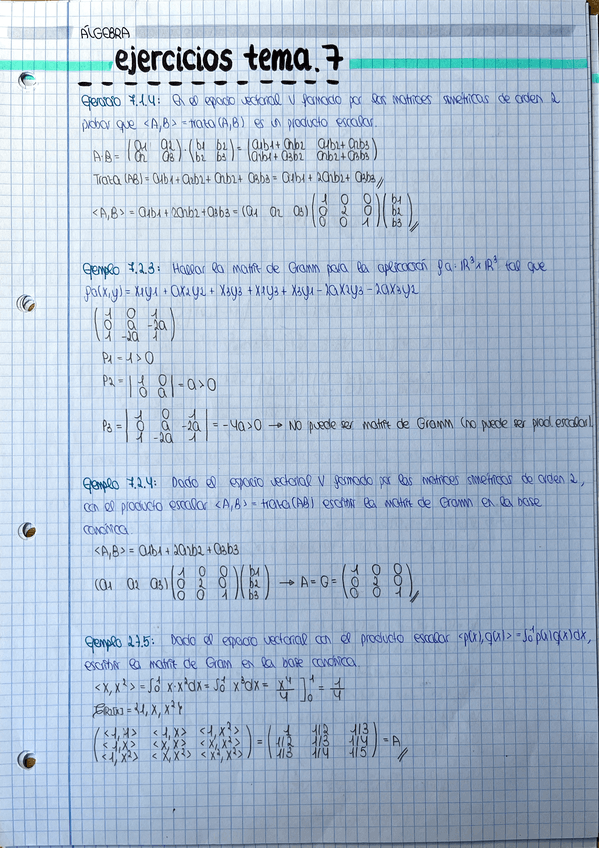 ÁLGEBRA
ejercicios tema.7
Ejercicio 7.1.4: En el espacio vectorial V formado por las matrices simétricas de orden 2
probar que <A,B> = traza(A,B) es un producto escalar.
A·B = (a1 a2 / a2 a3) · (b1 b2 / b2 b3) = (a1b1+a2b2 a1b2+a2b3 / a2b1+a3b2 a2b2+a3b3)
Traza(AB) = a1b1 + a2b2 + a2b2 + a3b3 = a1b1 + 2a2b2 + a3b3 //
<A,B> = a1b1 + 2a2b2 + a3b3 = (a1 a2 a3) (1 0 0 / 0 2 0 / 0 0 1) (b1 / b2 / b3) //
Ejemplo 7.2.3: Hallar la matriz de Gramm para la aplicación fa: ℝ³x ℝ³ tal que
fa(x,y) = x1y1 + ax2y2 + x3y3 + x1y3 + x3y1 - 2ax2y3 - 2ax3y2
(1 0 1 / 0 a -2a / 1 -2a 1)
P1 = 1 > 0
P2 = |1 0 / 0 a| = a > 0
P3 = |1 0 1 / 0 a -2a / 1 -2a 1| = -4a > 0 → No puede ser matriz de Gramm (no puede ser prod. escalar).
Ejemplo 7.2.4: Dado el espacio vectorial V formado por las matrices simétricas de orden 2,
con el producto escalar <A,B> = traza(AB) escribir la matriz de Gramm en la base
canónica.
<A,B> = a1b1 + 2a2b2 + a3b3
(a1 a2 a3) (1 0 0 / 0 2 0 / 0 0 1) (b1 / b2 / b3) → A = G = (1 0 0 / 0 2 0 / 0 0 1) //
Ejemplo 2.7.5: Dado el espacio vectorial con el producto escalar <p(x),q(x)> = ∫₀¹ p(x)q(x)dx,
escribir la matriz de Gram en la base canónica.
<x,x²> = ∫₀¹ x·x²dx = ∫₀¹ x³dx = x⁴/4 ]₀¹ = 1/4
= {1, x, x²}
(<1,1> <1,x> <1,x²> / <1,x> <x,x> <x,x²> / <1,x²> <x,x²> <x²,x²>) = (1 1/2 1/3 / 1/2 1/3 1/4 / 1/3 1/4 1/5) = A //